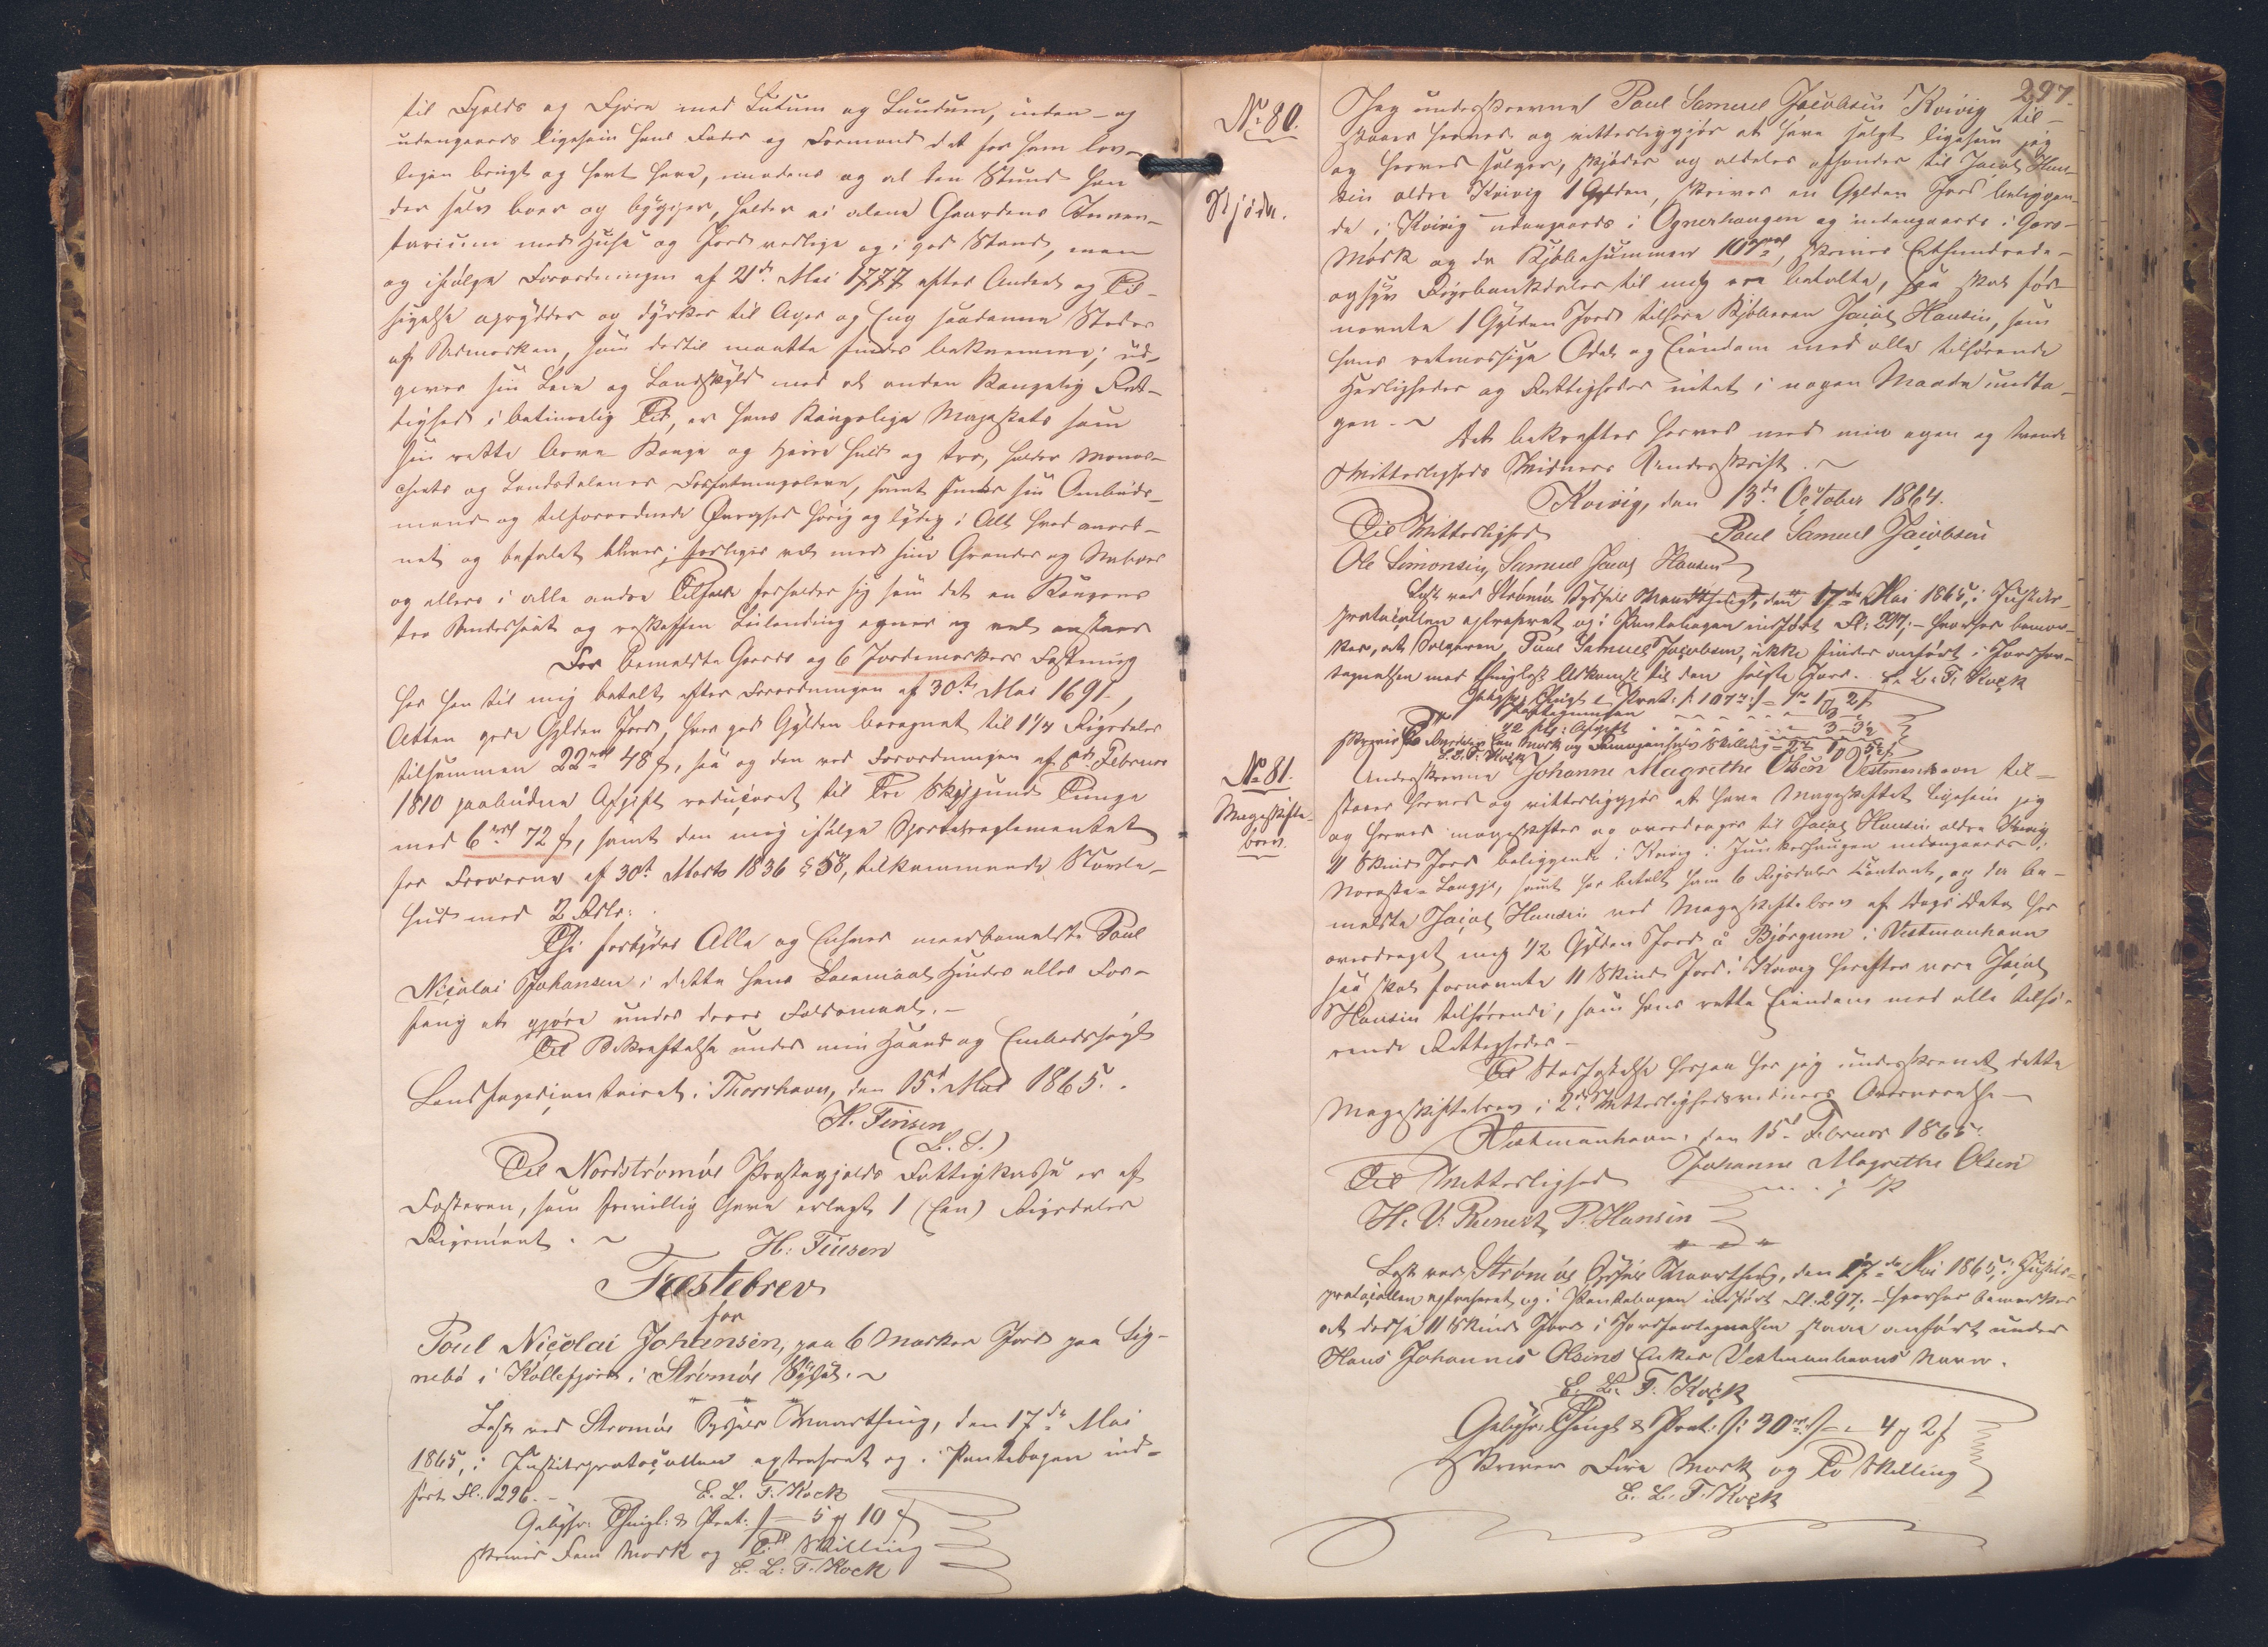 til Fjelds og Fjære med Lutum og Lundum, inden- og
udengaards ligesom hans Fader og Formand det før ham lov-
ligen brugt og havt have, imedens og al den Stund han
der selv boer og bygger, holder ei alene Gaardens Inven-
tarium med Huse og Jord vedlige og i god Stand, men
og ifølge Forordningen af 21de Mai 1777 efter Anden og Til-
sigelse oprydder og dyrker til Ager og Eng saadanne Steder
af Udmarken, som dertil maatte findes beqvemme; ud-
giver sin Leie og Landskyld med al anden Kongelig Ret-
tighed i betimelig Tid, er Hans Kongelige Majestæt som
sin rette Arve Konge og Herre huld og tro, holder Monar-
chiets og Landsdelenes Forfatningslove, samt sin Ombuds-
mand og tilforordnede Øvrighed hørig og lydig i Alt hvad anord-
net og befalet bliver; forliges vel med sine Grander og Naboer
og ellers i alle andre Tilfælde forholder sig som det en Kongens
tro Undersaat og retskaffen Leilending egner og vel anstaaer
For bemeldte Gaards og 6 Jordemarkers Fæstning
har han til mig betalt efter Forordningen af 30te Mai 1691,
Atten gode Gylden Jord, hver god Gylden beregnet til 1 1/4 Rigsdaler
tilsammen 22 rd 48 s, saa og den ved Forordningen af 8de Februar
1810 paabudne Afgift reduceret til Tre Skippund Tunge
med 6 rd 72 s, samt den mig ifølge Sportelreglementet
for Færøerne af 30te Marts 1836 § 58, tilkommende
hud med 2 Rdlr:
Thi forbydes Alle og Enhver meerbemeldte Poul
Nicolai Johansen i dette hans Leiemaal Hinder eller For-
fang at gjøre under deres Faldsmaal. -
Til Bekræftelse under min Haand og Embedssegl
Landfogedcontoiret i Thorshavn, den 15de Mai 1865.
H. Finsen
(L. S.)
Til Nordstrømøe Præstegjelds Fattigkasse er af
Fæsteren, som frivillig Gave erlagt 1 (Een) Rigsdaler
Rigsmønt. ~
H: Finsen
Fæstebrev
for
Poul Nicolai Johansen, paa 6 Marker Jord paa Sig-
nebö i Kollefjord i Strømøe Syssel. ~
Læst ved Strømøe Syssels Vaarthing, den 17de Mai
1865, i Justitsprotocollen extraheret og i Pantebogen ind-
ført Fl. 296. -
E. L. T. Kock
Gebyhr: Thingl: & Prot: /- 5 # 10 s
skriver Fem Mark og Ti Skilling
E. L: T. Kock
297.
No 80.
Skjøde.
Jeg underskrevne Poul Samuel Jacobsen Kvivig til-
staaer herved og vitterliggjør at have solgt ligesom jeg
og herved sælger, skjøder og aldeles afhænder til Jacob Han-
sen ældre Kvivig 1 Gylden, skriver en Gylden Jord beliggen-
de i Kvivig udengaards i Ognerhaugen og indengaards i
Mörk og da Kjøbesummen 107 rd, skriver Eethundrede-
ogsyv Rigsbankdaler til mig er betalte, saa skal før-
nevnte 1 Gylden Jord tilhøre Kjøberen Jacob Hansen, som
hans retmæssige Odel og Eiendom med alle tilhørende
Herligheder og Rettigheder intet i nogen Maade undta-
gen. - ~
Det bekræftes herved med min egen og tvende
Vitterligheds Vidners Underskrift. ~
Kvivig, den 13de October 1864.
Til Vitterlighed
Poul Samuel Jacobsen
Ole Simonsen, Samuel Jacob Hansen
Læst ved Strømøe Syssels Vaarthing, den 17de Mai 1865, i Justits-
protocollen extraheret og i Pantebogen indført Fl: 297; - hvorhos bemær-
kes, at Sælgeren, Poul Samuel Jacobsen, ikke findes anført i Jordfor-
tegnelsen med thinglæst Adkomst til den solgte Jord. E. L. T. Kock
Gebyhr: Thingl: & Prot: /: 107 rd :/ - 1 rd 1 # 2 s
E. L. T. Kock
No 81.
Mageskifte-
brev.
Underskrevne Johanne Magrethe Olsen Vestmanhavn til-
staaer herved og vitterliggjør at have Mageskiftet ligesom jeg
og herved mageskifter og overdrager til Jacob Hansen ældre Kvivig
11 Skind Jord beliggende i Kvivig i Junkershaugen indengaards i
Norasta-Longje, samt har betalt ham 6 Rigsdaler Contant, og da be-
meldte Jacob Hansen ved Mageskiftebrev af Dags Dato har
overdraget mig 1/2 Gylden Jord å Björgum i Vestmanhavn
saa skal fornevnte 11 Skind Jord i Kvivig herefter være Jacob
Hansen tilhørende, som hans rette Eiendom med alle tilhø-
rende Rettigheder -
Til Stadfæstelse herpaa har jeg underskrevet dette
Mageskiftebrev i 2de Vitterlighedsvidners Overværelse -
Vestmanhavn, den 15de Februar 1865.
Til Vitterlighed
Johanne Magrethe Olsen
m. f. P
H. V: P. Hansen
Læst ved Strømøe Syssels Vaarthing, den 17de Mai 1865, i Justits-
protocollen extraheret og i Pantebogen indført Fl: 297; - hvorhos bemærkes
at disse 11 Skind Jord i Jordfortegnelsen staae anført under
Hans Johannes Olsens Enkes Vestmanhavns Navn.
E. L. T. Kock
Gebyhr: Thingl: & Prot: /: 30 rd :/ - 4 # 2 s
Skriver Fire Mark og To Skilling
E. L. T. Kock